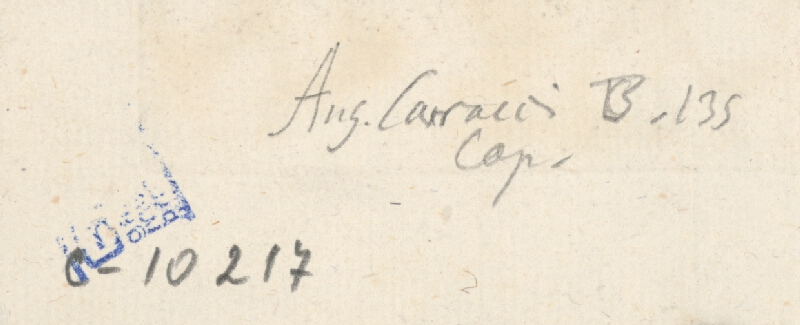 Aug. Carracci B. 135
Cop.
C-10217